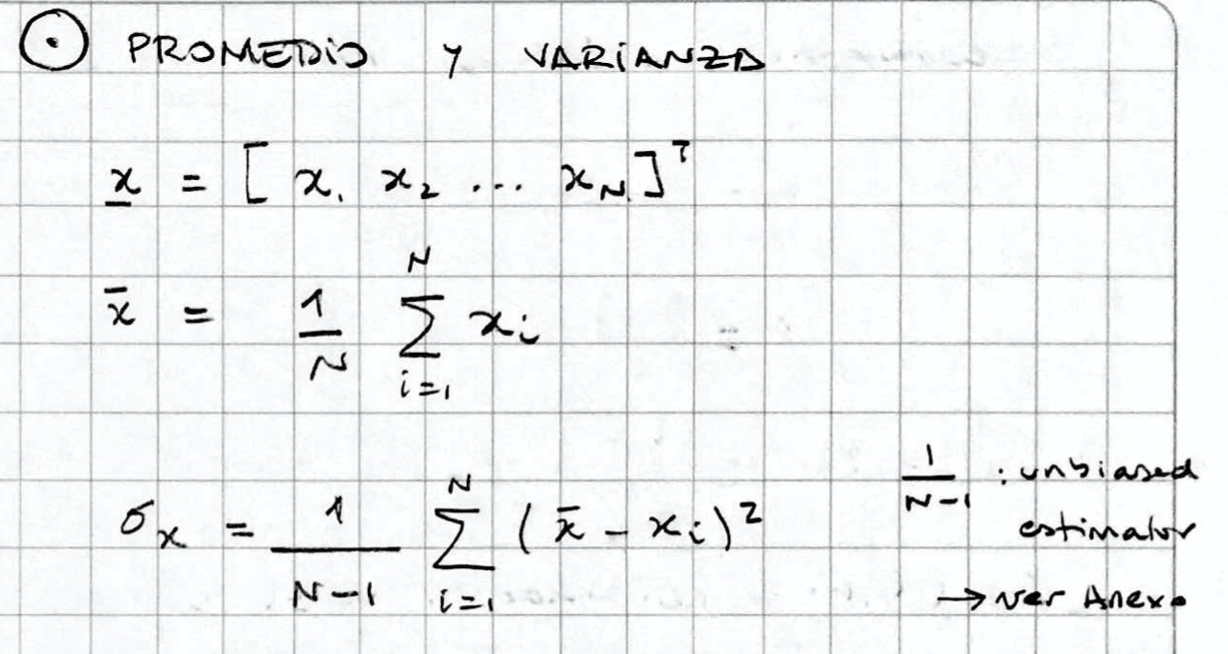 ⊙ PROMEDIO Y VARIANZA
x = [ x₁ x₂ ... x_N ]ᵀ
x̄ = 1/N ∑_{i=1}^{N} x_i
σ_x = 1/(N-1) ∑_{i=1}^{N} ( x̄ - x_i )²
1/(N-1) : unbiased
estimator
→ ver Anexo